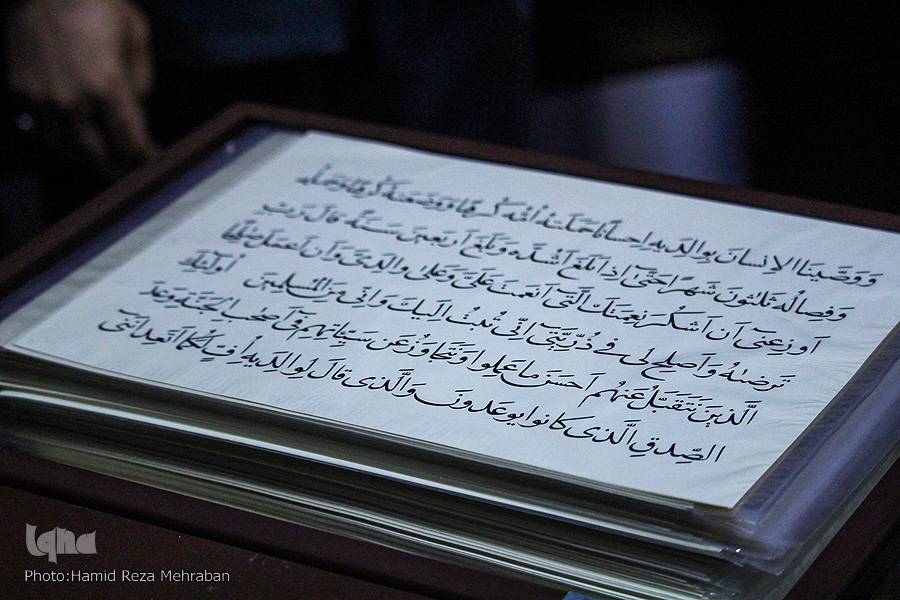 وَوَصَّینَا الاِنسانَ بِوالِدَیهِ اِحسانًا حَمَلَتهُ اُمُّه کُرهًا وَوَضَعَتهُ کُرهًا وَحَملُه
وَفِصالُه ثَلٰثونَ شَهرًا حَتّیٰ اِذا بَلَغَ اَشُدَّه وَبَلَغَ اَربَعینَ سَنَةً قالَ رَبِّ
اَوزِعنی اَن اَشکُرَ نِعمَتَكَ الَّتی اَنعَمتَ عَلَیَّ وَعَلیٰ والِدَیَّ وَاَن اَعمَلَ صٰلِحًا
تَرضىٰهُ وَاَصلِح لی فی ذُرِّیَّتی اِنّی تُبتُ اِلَیكَ وَاِنّی مِنَ المُسلِمینَ اُولٰئِكَ
الَّذینَ نَتَقَبَّلُ عَنهُم اَحسَنَ ما عَمِلوا وَنَتَجاوَزُ عَن سَیِّئاتِهِم فی اَصحٰبِ الجَنَّةِ وَعدَ
الصِّدقِ الَّذی کانوا یوعَدونَ وَالَّذی قالَ لِوالِدَیهِ اُفٍّ لَکُما اَتَعِدانِنی
iqna
Photo:Hamid Reza Mehraban